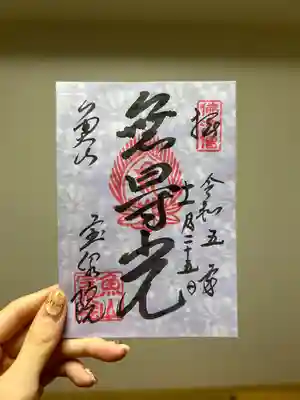 拝
令和五年
十一月二十五日
無㝵光
魚山
宝泉院
魚山